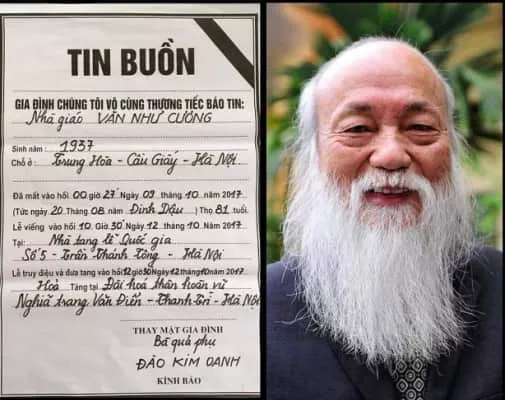 TIN BUỒN
GIA ĐÌNH CHÚNG TÔI VÔ CÙNG THƯƠNG TIẾC BÁO TIN:
Nhà giáo VĂN NHƯ CƯƠNG
Sinh năm: 1937
Chỗ ở: Trung Hòa - Cầu Giấy - Hà Nội
Đã mất vào hồi 00 giờ 27 Ngày 09 tháng 10 năm 2017
(Tức ngày 20 Tháng 08 năm Đinh Dậu) Thọ 81 tuổi.
Lễ viếng vào hồi 10 Giờ 30 Ngày 12 tháng 10 Năm 2017
Tại: Nhà tang lễ Quốc gia
Số 5 - Trần Thánh Tông - Hà Nội
Lễ truy điệu và đưa tang vào hồi 12 giờ 30 Ngày 12 tháng 10 năm 2017
Hoả Táng tại Đài hoá thân hoàn vũ
Nghĩa trang Văn Điển - Thanh Trì - Hà Nội
THAY MẶT GIA ĐÌNH
Bà quả phụ
ĐÀO KIM OANH
KÍNH BÁO